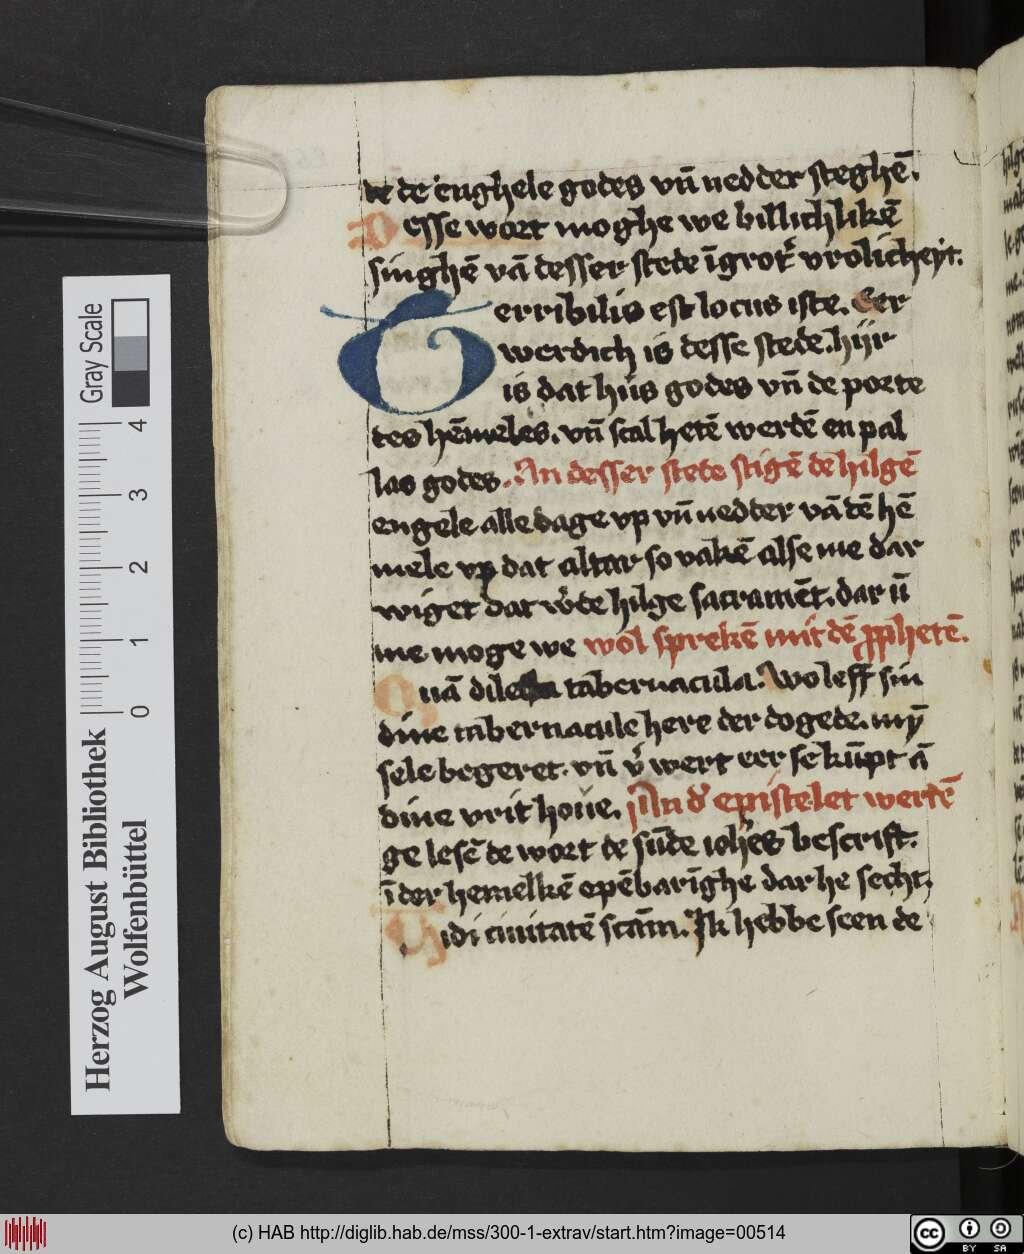 de de enghele godes vn̄ nedder steghē.
Desse wort moghe we billichlikē
singhē vā desser stede ī grot' vrolicheyt.
Terribilis est locus iste. Eer
werdich is desse stede. hijr
is dat hus godes vn̄ de porte
des hēmeles. vn̄ scal hetē werdē en pal
las godes. An desser stede stigē de hilgē
engele alle dage vp vn̄ nedder vā dē hē
mele vp dat altar so vakē alse me dar
wiget dat w'de hilge sacramēt. dar ū
me moge we wol sprekē mit dē ꝓphetē.
Quā dilecta tabernacula. Wo leff sin
dine tabernacule here der dogede. mȳ
sele begeret. vn̄ v' wert eer se kūpt ā
dine vrithoue. An d' epistelet werdē
gelesē de wort de sūte ioh'es bescrift.
ī der hemelkē opēbarīghe dar he secht.
Uidi ciuitatē scām. Ik hebbe seen de
Gray Scale
0 1 2 3 4
Herzog August Bibliothek
Wolfenbüttel
(c) HAB http://diglib.hab.de/mss/300-1-extrav/start.htm?image=00514
cc BY SA